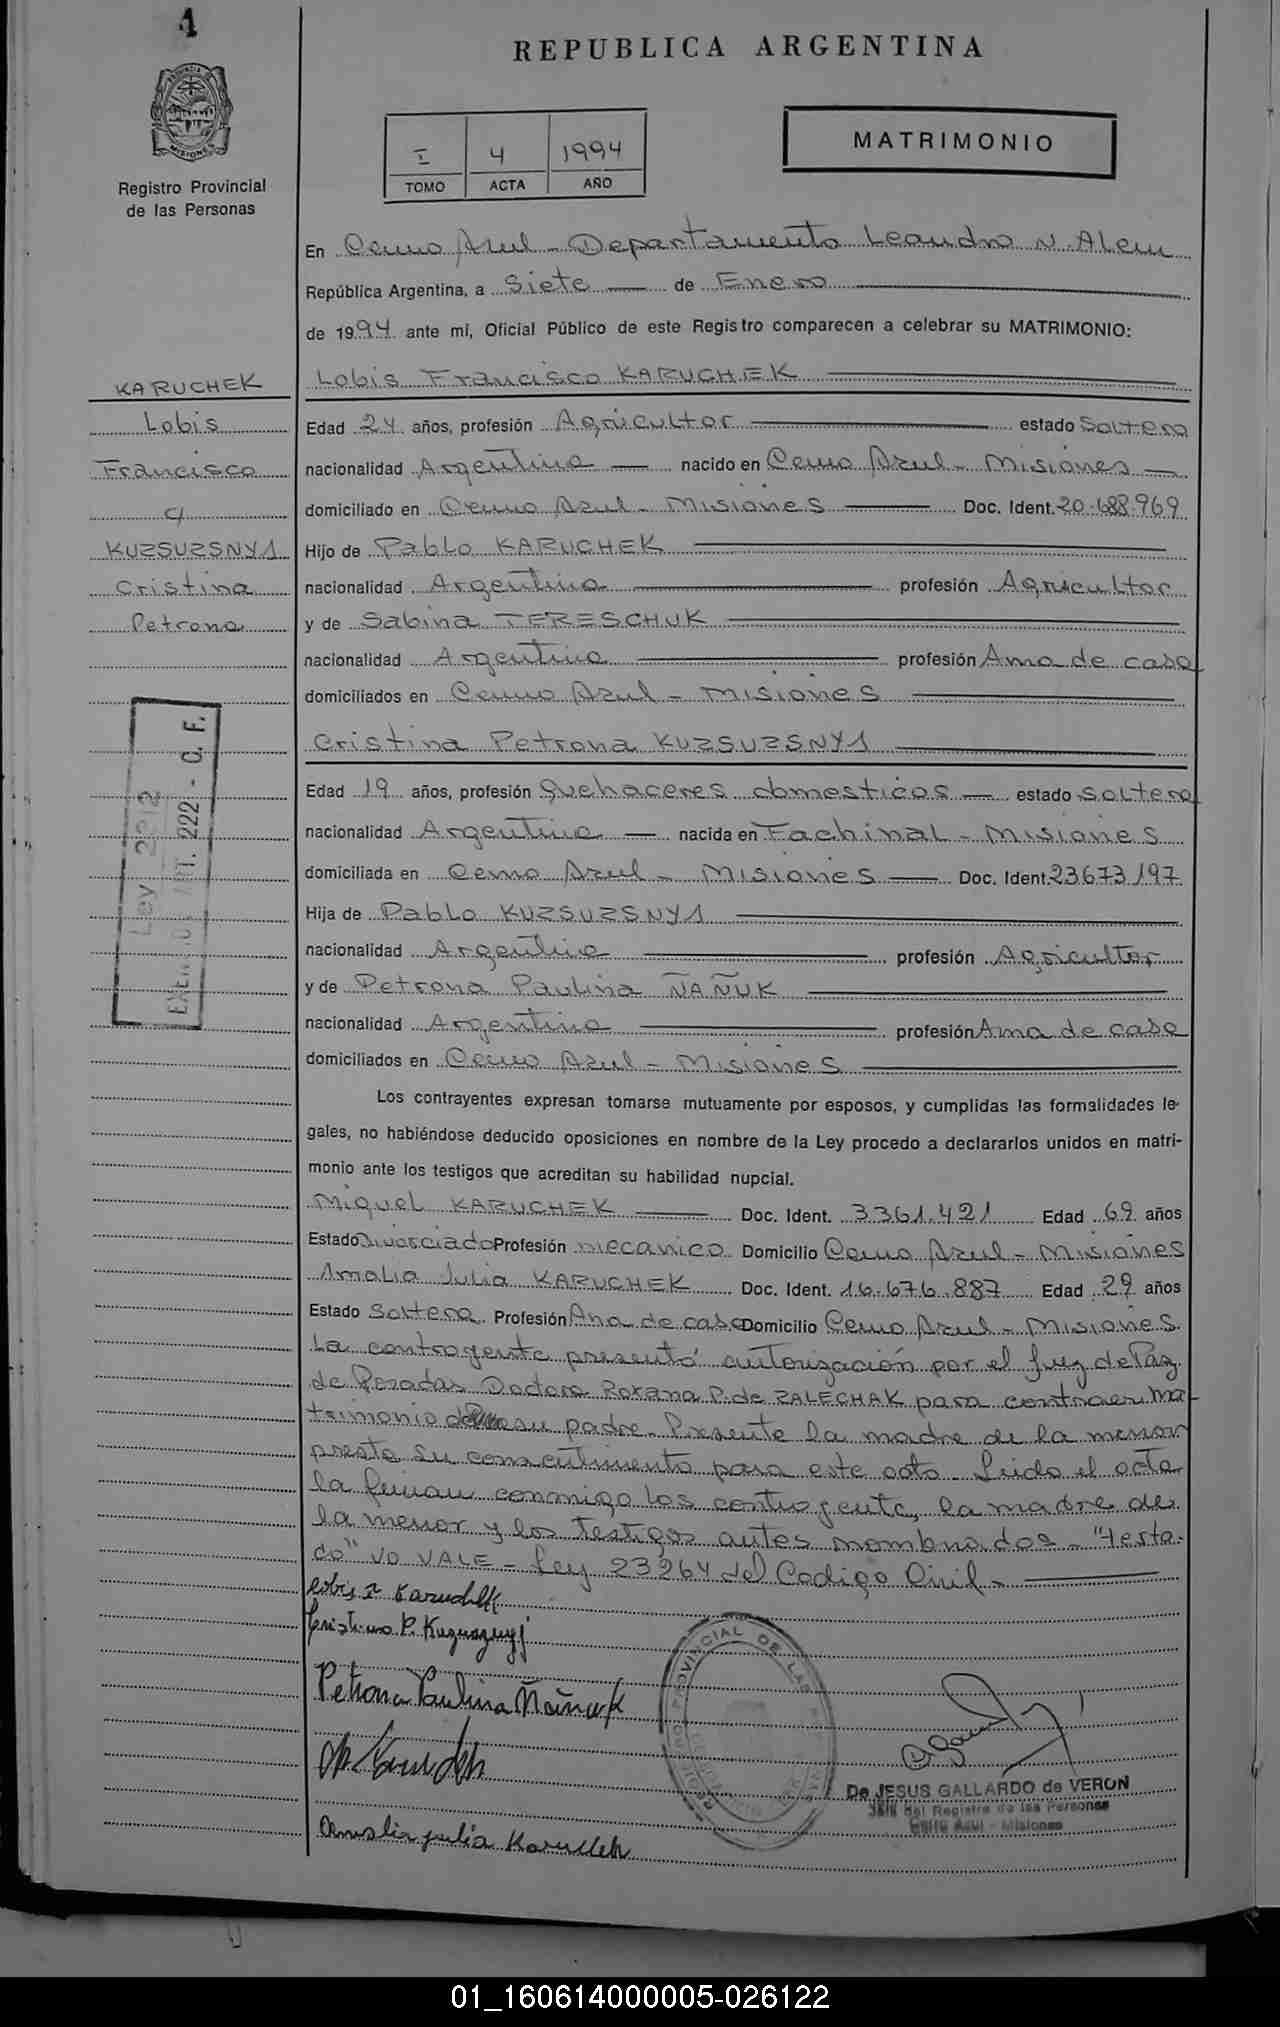 1
REPUBLICA ARGENTINA
PROVINCIA DE MISIONES
Registro Provincial
de las Personas
I 4 1994
TOMO ACTA AÑO
MATRIMONIO
En Cerro Azul - Departamento Leandro N. Alem
República Argentina, a Siete de Enero
de 1994 ante mí, Oficial Público de este Registro comparecen a celebrar su MATRIMONIO:
KARUCHEK
Lobis
Francisco
c/
KUZSUZSNYI
Cristina
Petrona
Lobis Francisco KARUCHEK
Edad 24 años, profesión Agricultor estado Soltero
nacionalidad Argentino nacido en Cerro Azul - Misiones
domiciliado en Cerro Azul - Misiones Doc. Ident. 20.688.969
Hijo de Pablo KARUCHEK
nacionalidad Argentino profesión Agricultor
y de Sabina TERESCHUK
nacionalidad Argentina profesión Ama de casa
domiciliados en Cerro Azul - Misiones
Cristina Petrona KUZSUZSNYI
Edad 19 años, profesión Quehaceres domesticos estado soltera
nacionalidad Argentina nacida en Fachinal - Misiones
domiciliada en Cerro Azul - Misiones Doc. Ident. 23673197
Hija de Pablo KUZSUZSNYI
nacionalidad Argentino profesión Agricultor
y de Petrona Paulina ÑAÑUK
nacionalidad Argentina profesión Ama de casa
domiciliados en Cerro Azul - Misiones
Ley 2212
ART. 222 - C. F.
Los contrayentes expresan tomarse mutuamente por esposos, y cumplidas las formalidades le-
gales, no habiéndose deducido oposiciones en nombre de la Ley procedo a declararlos unidos en matri-
monio ante los testigos que acreditan su habilidad nupcial.
Miguel KARUCHEK Doc. Ident. 3361.421 Edad 69 años
Estado Divorciado Profesión mecanico Domicilio Cerro Azul - Misiones
Amalia Julia KARUCHEK Doc. Ident. 16.676.887 Edad 29 años
Estado Soltera Profesión Ama de casa Domicilio Cerro Azul - Misiones
La contrayente presentó autorización por el Juez de Paz
de Posadas Doctora Roxana P. de ZALECHAK para contraer ma-
trimonio de su padre. Presente la madre de la menor
presta su consentimiento para este acto. Leida el acta
la firman conmigo los contrayente, la madre de
la menor y los testigos antes nombrados - "testa-
do" no VALE - Ley 23264 del Codigo Civil -
Lobis F. Karuchek
Cristina P. Kuzsuzsnyi
Petrona Paulina Ñañuk
Amalia Julia Karuchek
PROVINCIAL DE LAS
De JESUS GALLARDO de VERON
Jefe del Registro de las Personas
Cerro Azul - Misiones
01_160614000005-026122